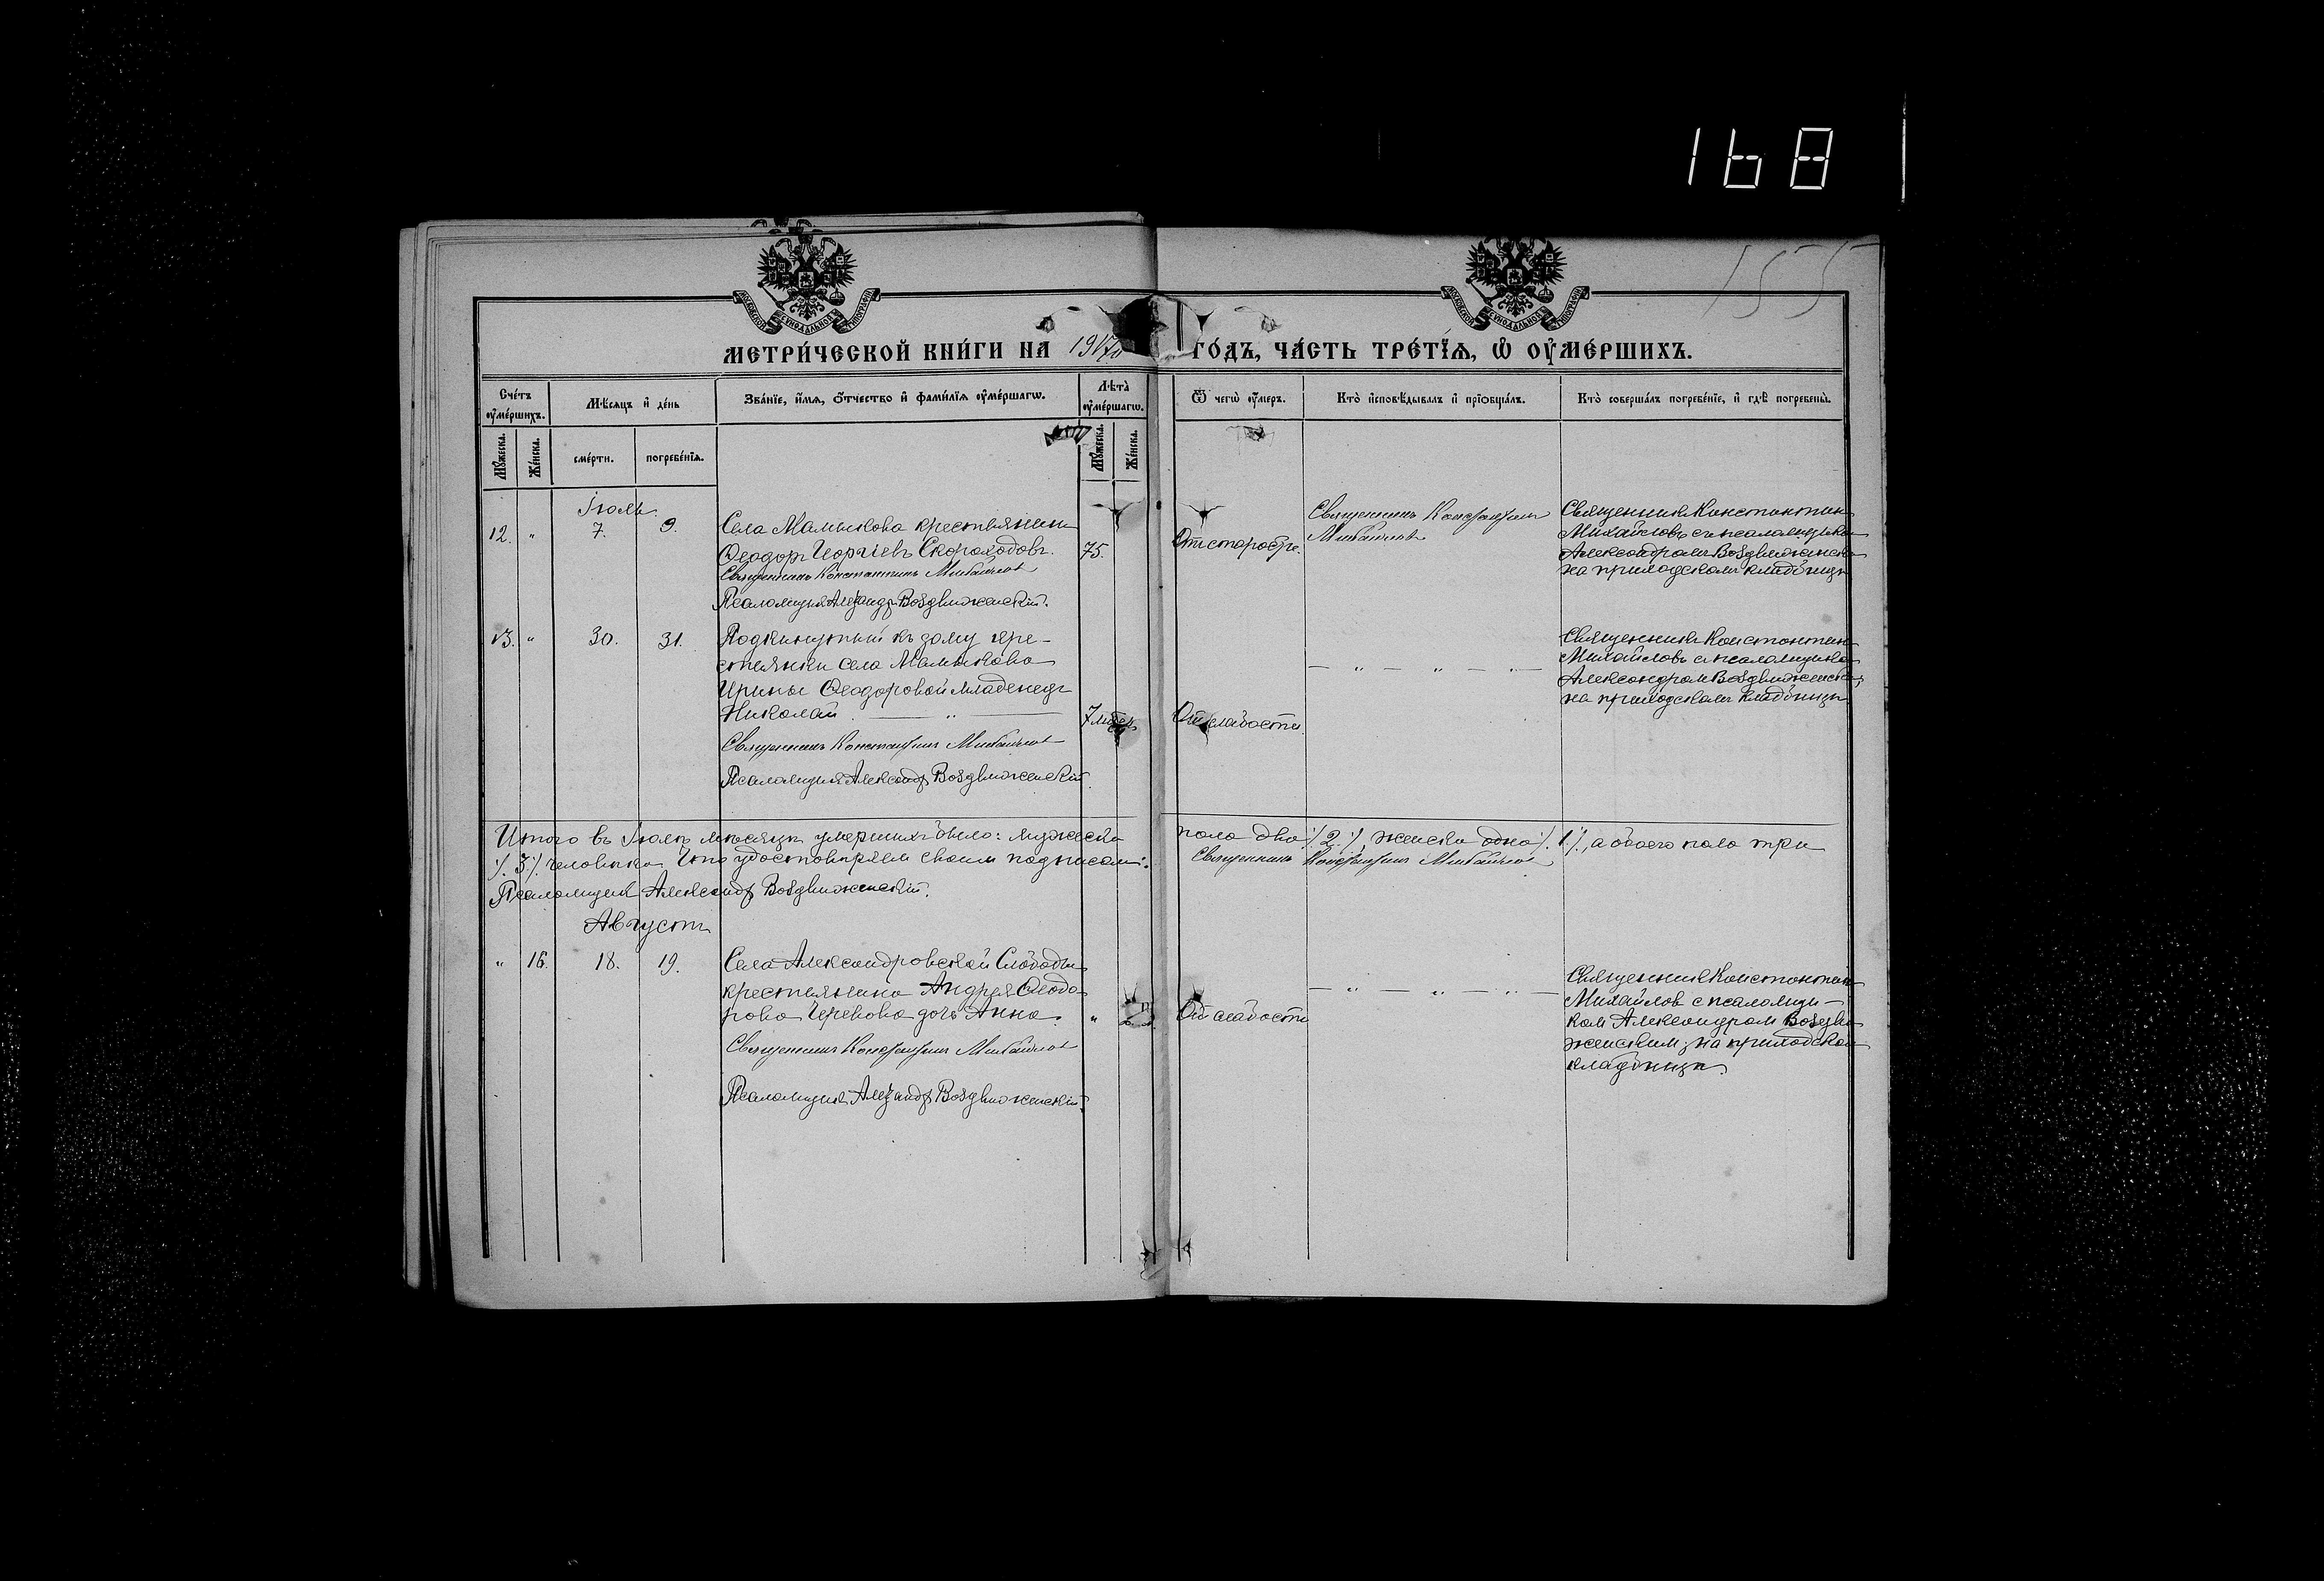 168
155
МОСКОВСКОЙ СУНОДАЛЬНОЙ ТИПОГРАФІИ
МОСКОВСКОЙ СУНОДАЛЬНОЙ ТИПОГРАФІИ
МЕТРИ́ЧЕСКОЙ КНИ́ГИ НА 1917й ГО́ДЪ, ЧА́СТЬ ТРЕ́ТЇѦ, Ѡ҆ ОУ҆МЕ́РШИХЪ.
Сче́тъ оу҆ме́ршихъ.
Мѣ́сяцъ и҆ де́нь
Зва́нїе, и҆́мѧ, ѻ҆́тчество и҆ фами́лїѧ оу҆ме́ршагѡ.
Лѣ́та оу҆ме́ршагѡ.
Ѿ чегѡ̀ оу҆́меръ.
Кто̀ и҆сповѣ́дывалъ и҆ прїѡбща́лъ.
Кто̀ соверша́лъ погребе́нїе, и҆ гдѣ̀ погребены̀.
Мꙋ́жеска.
Же́нска.
сме́рти.
погребе́нїѧ.
Мꙋ́жеска.
Же́нска.
Іюль.
12. " 7. 9.
Села Мамыкова крестьянинъ
Ѳеодоръ Георгіевъ Скороходовъ.
75.
Священникъ Константинъ Михайловъ
Псаломщикъ Александръ Воздвиженскій.
Отъ старости.
Священникъ Константинъ
Михайловъ
Священникъ Константинъ
Михайловъ съ псаломщикомъ
Александромъ Воздвиженскимъ
на приходскомъ кладбищѣ
13. " 30. 31.
Подкинутый къ дому кре-
стьянки села Мамыкова
Ирины Ѳеодоровой младенецъ
Николай — " —
7 мѣсяц.
Священникъ Константинъ Михайловъ
Псаломщикъ Александръ Воздвиженскій
Отъ слабости.
— " — " — " —
Священникъ Константинъ
Михайловъ с псаломщикомъ
Александромъ Воздвиженскимъ,
на приходскомъ кладбищѣ
Итого въ Іюлѣ мѣсяцѣ умершихъ было: мужеска пола два /.2./, женска одна /.1./, а обоего пола три
/.3./ человѣка. Что удостовѣряем своим подписом:. Священникъ Константинъ Михайловъ
Псаломщикъ Александръ Воздвиженскій.
Августъ
" 16. 18. 19.
Села Александровской Слободы
крестьянина Андрея Ѳеодо-
рова Черкова дочь Анна.
"
Священникъ Константинъ Михайловъ
Псаломщикъ Александръ Воздвиженскій.
От слабости
— " — " — " —
Священникъ Константин
Михайлов с псаломщи-
ком Александром Воздви-
женским, на приходском
кладбищѣ.